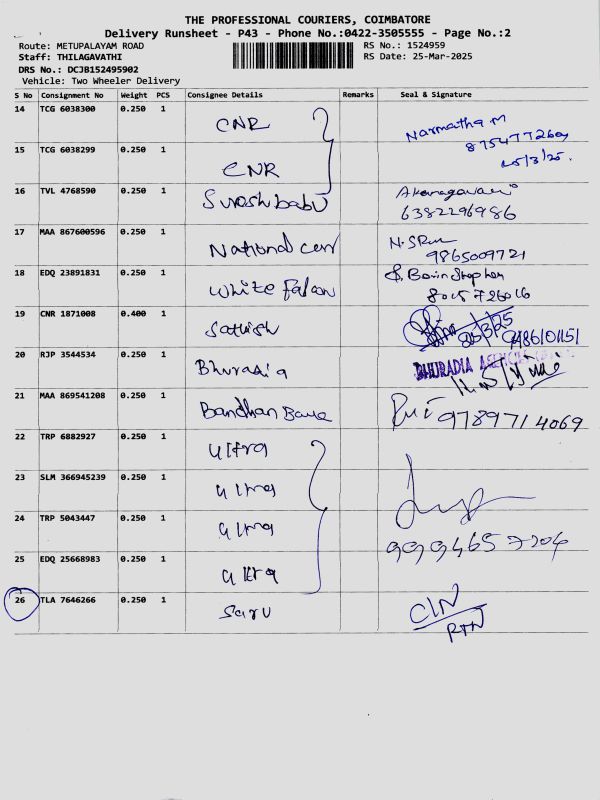 THE PROFESSIONAL COURIERS, COIMBATORE
Delivery Runsheet - P43 - Phone No.:0422-3505555 - Page No.:2
Route: METUPALAYAM ROAD RS No.: 1524959
Staff: THILAGAVATHI RS Date: 25-Mar-2025
DRS No.: DCJB152495902
Vehicle: Two Wheeler Delivery
S No Consignment No Weight PCS Consignee Details Remarks Seal & Signature
14 TCG 6038300 0.250 1 CNR Narmatha M
8754772609
15 TCG 6038299 0.250 1 CNR 25/3/25.
16 TVL 4768590 0.250 1 Sureshbabu
6382296986
17 MAA 867600596 0.250 1 National
9865009721
18 EDQ 23891831 0.250 1 White Falcon S. Bovin Stephen
8015726016
19 CNR 1871008 0.400 1 Sathish 25/3/25 9486101151
20 RJP 3544534 0.250 1 Bhuradia BHURADIA
21 MAA 869541208 0.250 1 Bandhan 9789714069
22 TRP 6882927 0.250 1 Ultra
23 SLM 366945239 0.250 1 Ultra
24 TRP 5043447 0.250 1 Ultra 9994657204
25 EDQ 25668983 0.250 1 Ultra
26 TLA 7646266 0.250 1 Saru C/N
RTN